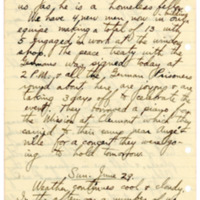 so far, he is a homeless fellow.
We have 4 new men now in our
equipe making a total of 13 with
5 engaged in work at the window
shop. The peace treaty with the
Germans was signed today at
2 P.M., & all the German Prisoners
round about here, are joyous & are
taking 3 days off to celebrate the
event. They borrowed a piano from
the Mission at Clermont which they
carried to their camp near
for a concert they are
to hold tomorrow
Sun. June 29.
Weather continues cool & cloudy